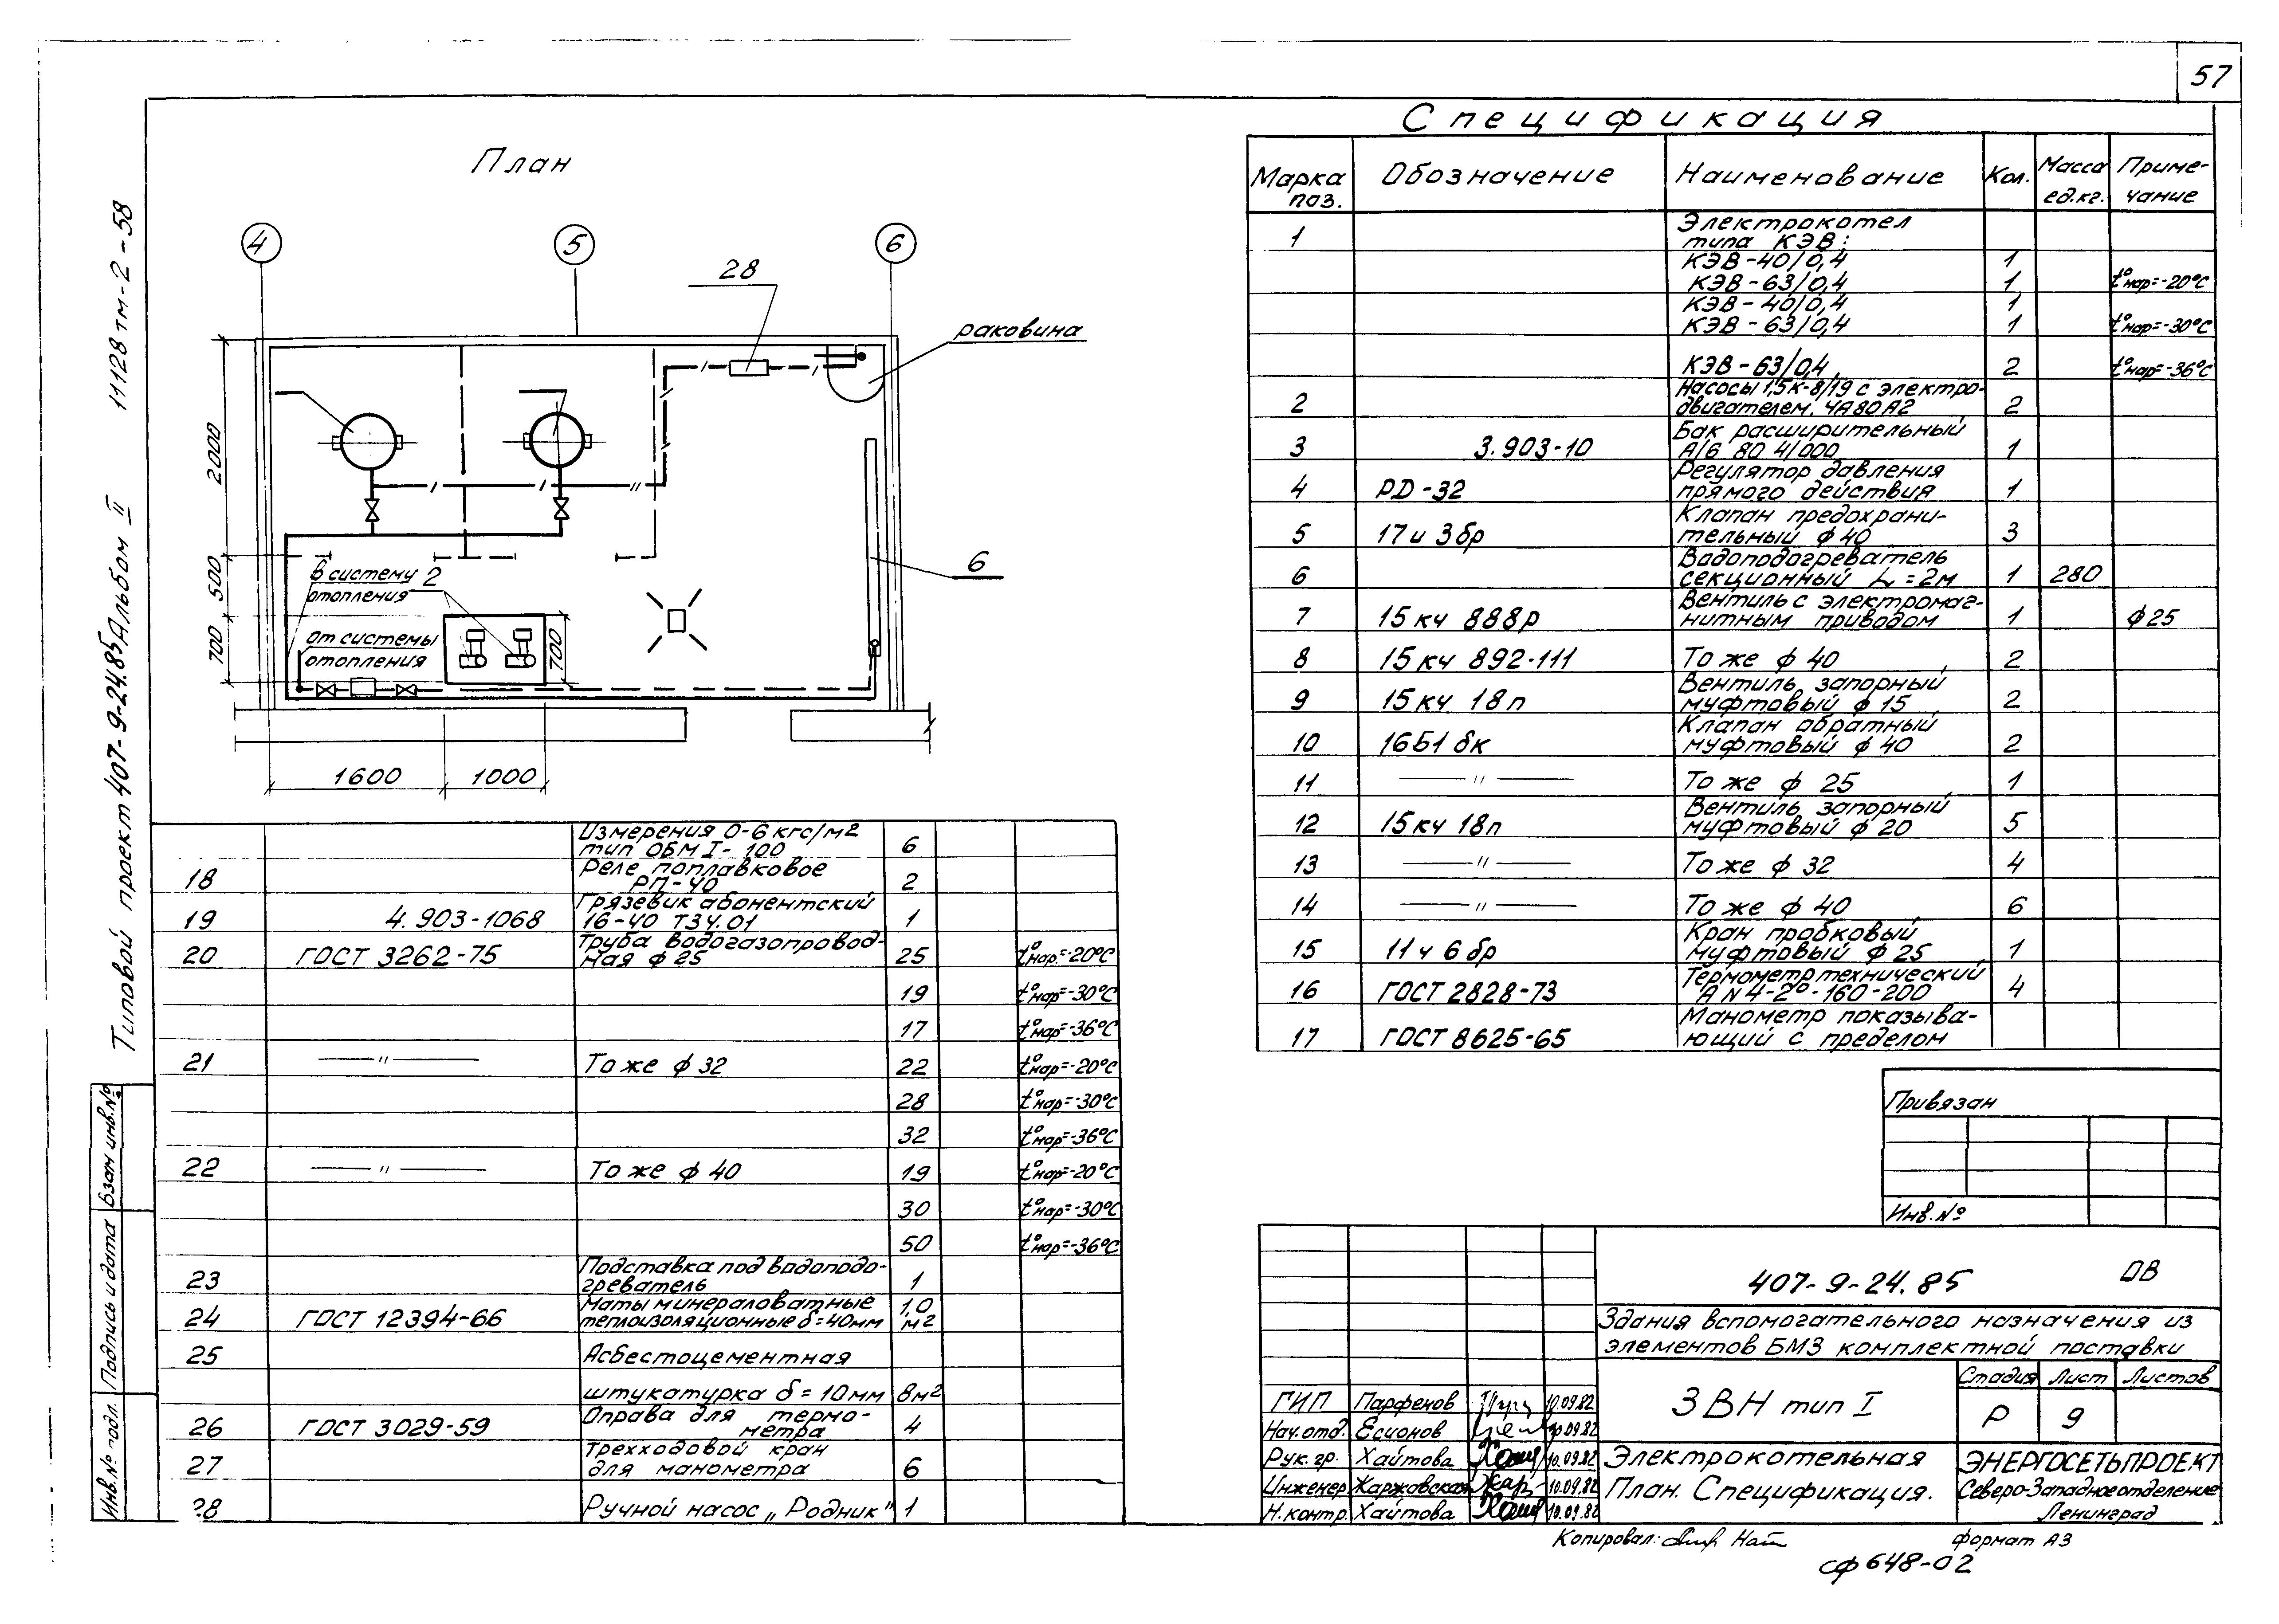 57
Типовой проект 407-9-24.85 Альбом II 11128 тм-2-58
План
4
5
6
28
раковина
6
2000
500
700
в систему
отопления
2
от системы
отопления
700
1600
1000
Спецификация
Марка поз. Обозначение Наименование Кол. Масса ед.кг. Приме-чание
1 Электрокотел
типа КЭВ:
КЭВ-40/0,4 1
КЭВ-63/0,4 1 t°нар=-20°С
КЭВ-40/0,4 1
КЭВ-63/0,4 1 t°нар=-30°С
КЭВ-63/0,4 2 t°нар=-36°С
2 Насосы 1,5к-8/19 с электро-
двигателем. 4А80А2 2
3 3.903-10 Бак расширительный
А/6 80 4/000 1
4 РД-32 Регулятор давления
прямого действия 1
5 17ч 3бр Клапан предохрани-
тельный ф40 3
6 Водоподогреватель
секционный L=2м 1 280
7 15кч 888р Вентиль с электромаг-
нитным приводом 1 ф25
8 15кч 892-111 То же ф 40 2
9 15кч 18п Вентиль запорный
муфтовый ф 15 2
10 16Б1бк Клапан обратный
муфтовый ф 40 2
11 — " — То же ф 25 1
12 15кч 18п Вентиль запорный
муфтовый ф 20 5
13 — " — То же ф 32 4
14 — " — То же ф 40 6
15 11ч 6бр Кран пробковый
муфтовый ф 25 1
16 ГОСТ 2828-73 Термометр технический
А N4-2°-160-200 4
17 ГОСТ 8625-65 Манометр показыва-
ющий с пределом
Измерения 0-6 кгс/м2
тип ОБМ I-100 6
18 Реле поплавковое
РП-40 2
19 4.903-1068 Грязевик абонентский
16-40 Т34.01 1
20 ГОСТ 3262-75 Труба водогазопровод-
ная ф 25 25 t°нар.=-20°С
19 t°нар=-30°С
17 t°нар=-36°С
21 — " — То же ф 32 22 t°нар=-20°С
28 t°нар=-30°С
32 t°нар=-36°С
22 — " — То же ф 40 19 t°нар=-20°С
30 t°нар=-30°С
50 t°нар=-36°С
23 Подставка под водоподо-
греватель 1
24 ГОСТ 12394-66 Маты минераловатные
теплоизоляционные δ=40мм 1,0 м2
25 Асбестоцементная
штукатурка δ=10мм 8м2
26 ГОСТ 3029-59 Оправа для термо-
метра 4
27 Трехходовой кран
для манометра 6
28 Ручной насос „Родник" 1
Привязан
Инв.№
407-9-24.85 ОВ
Здания вспомогательного назначения из
элементов БМЗ комплектной поставки
ЗВН тип I
Стадия Лист Листов
Р 9
ГИП Парфенов 10.09.82
Нач.отд. Есионов 10.09.82
Рук.гр. Хайтова 10.09.82
Инженер Жаржавская 10.09.82
Н.контр. Хайтова 10.09.82
Электрокотельная
План. Спецификация.
ЭНЕРГОСЕТЬПРОЕКТ
Северо-Западное отделение
Ленинград
Инв.№ подл. Подпись и дата Взам инв.№
Копировал: формат А3
сф 648-02